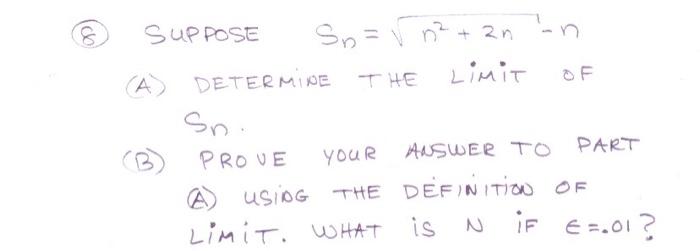 ⑧ SUPPOSE Sn = √(n² + 2n) - n
Ⓐ DETERMINE THE LIMIT OF
Sn.
Ⓑ PROVE YOUR ANSWER TO PART
Ⓐ USING THE DEFINITION OF
LIMIT. WHAT IS N IF ε=.01?